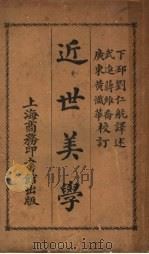 下邳劉仁航譯述
武進蔣維喬
廣東黃懺華
校訂
近世美學
上海商務印書館出版